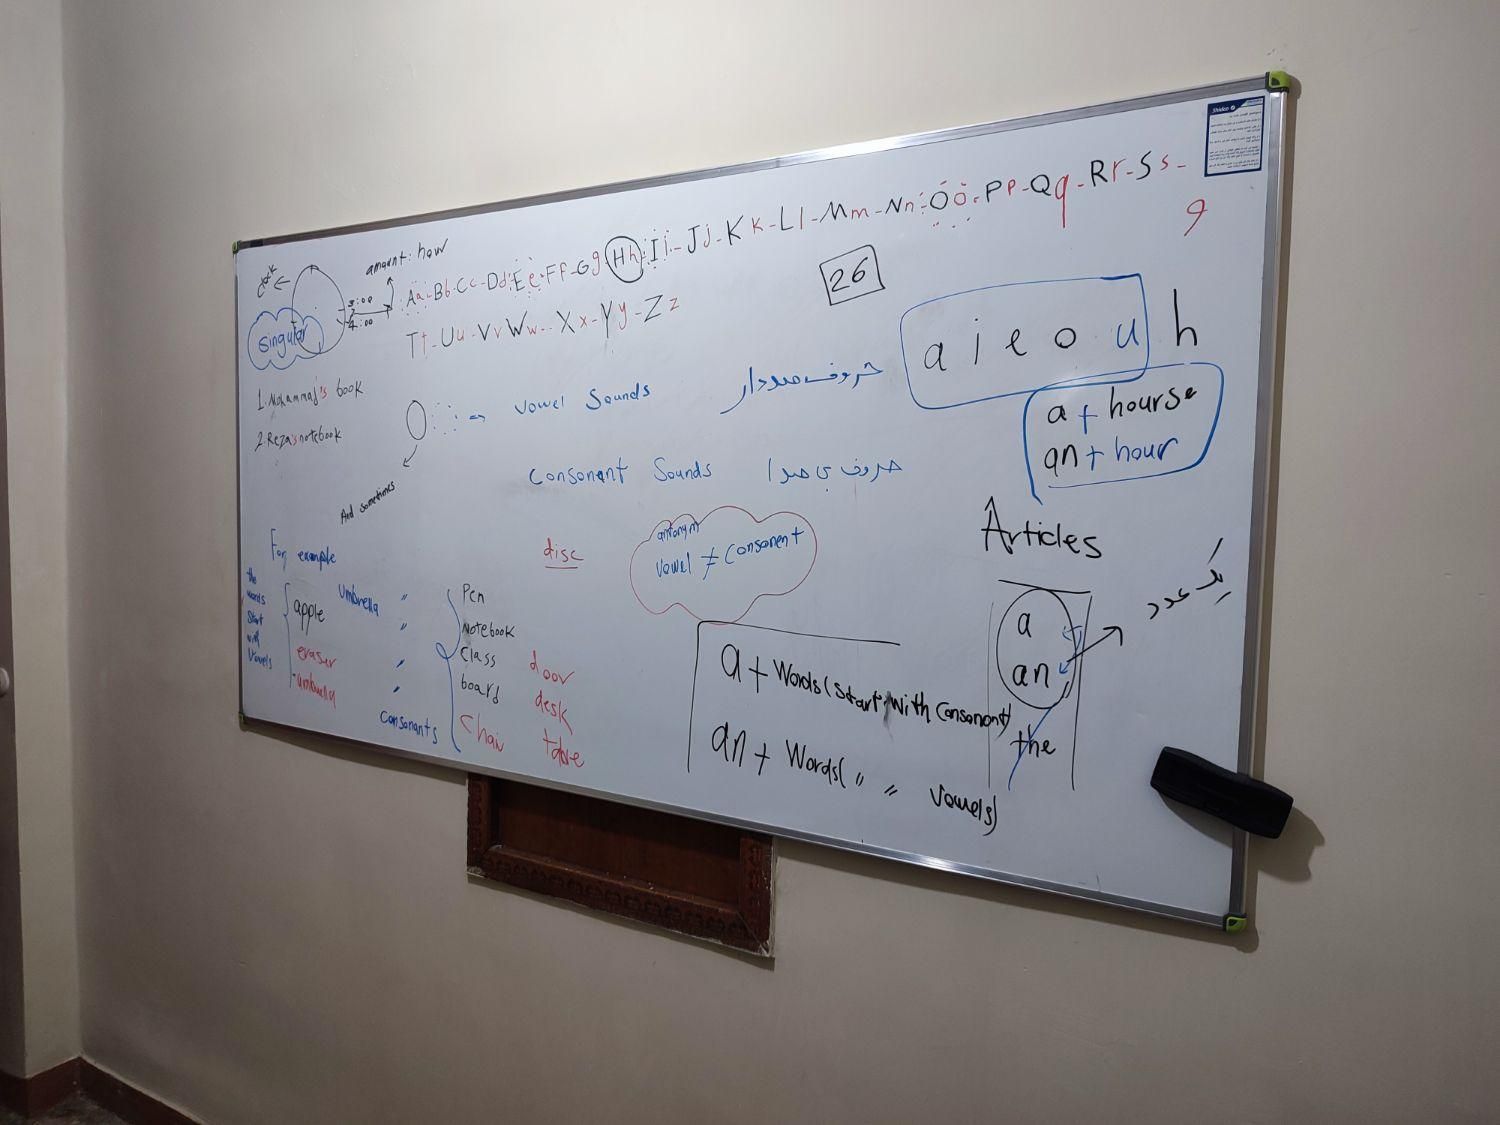 amount: how
Aa-Bb-Cc-Dd-Ee-Ff-Gg-Hh-Ii-Jj-Kk-Ll-Mm-Nn-Oo-Pp-Qq-Rr-Ss-
9
Tt-Uu-Vv-Ww-Xx-Yy-Zz
26
3:00
4:00
singular
a i e o u h
1. Mohammad's book
2. Reza's notebook
vowel Sounds حروف صدادار
a + hourse
an + hour
Consonent Sounds حروف بی صدا
And sometimes
Articles
For example
the words start with vowels
apple
eraser
umbrella
umbrella "
"
"
"
consonants
Pen
Notebook
class
board
chair
door
desk
disc
antonym
vowel ≠ consonent
a
an
the
یک عدد
a + Words (start with consonent)
an + Words ( " " vowels)
Shidco